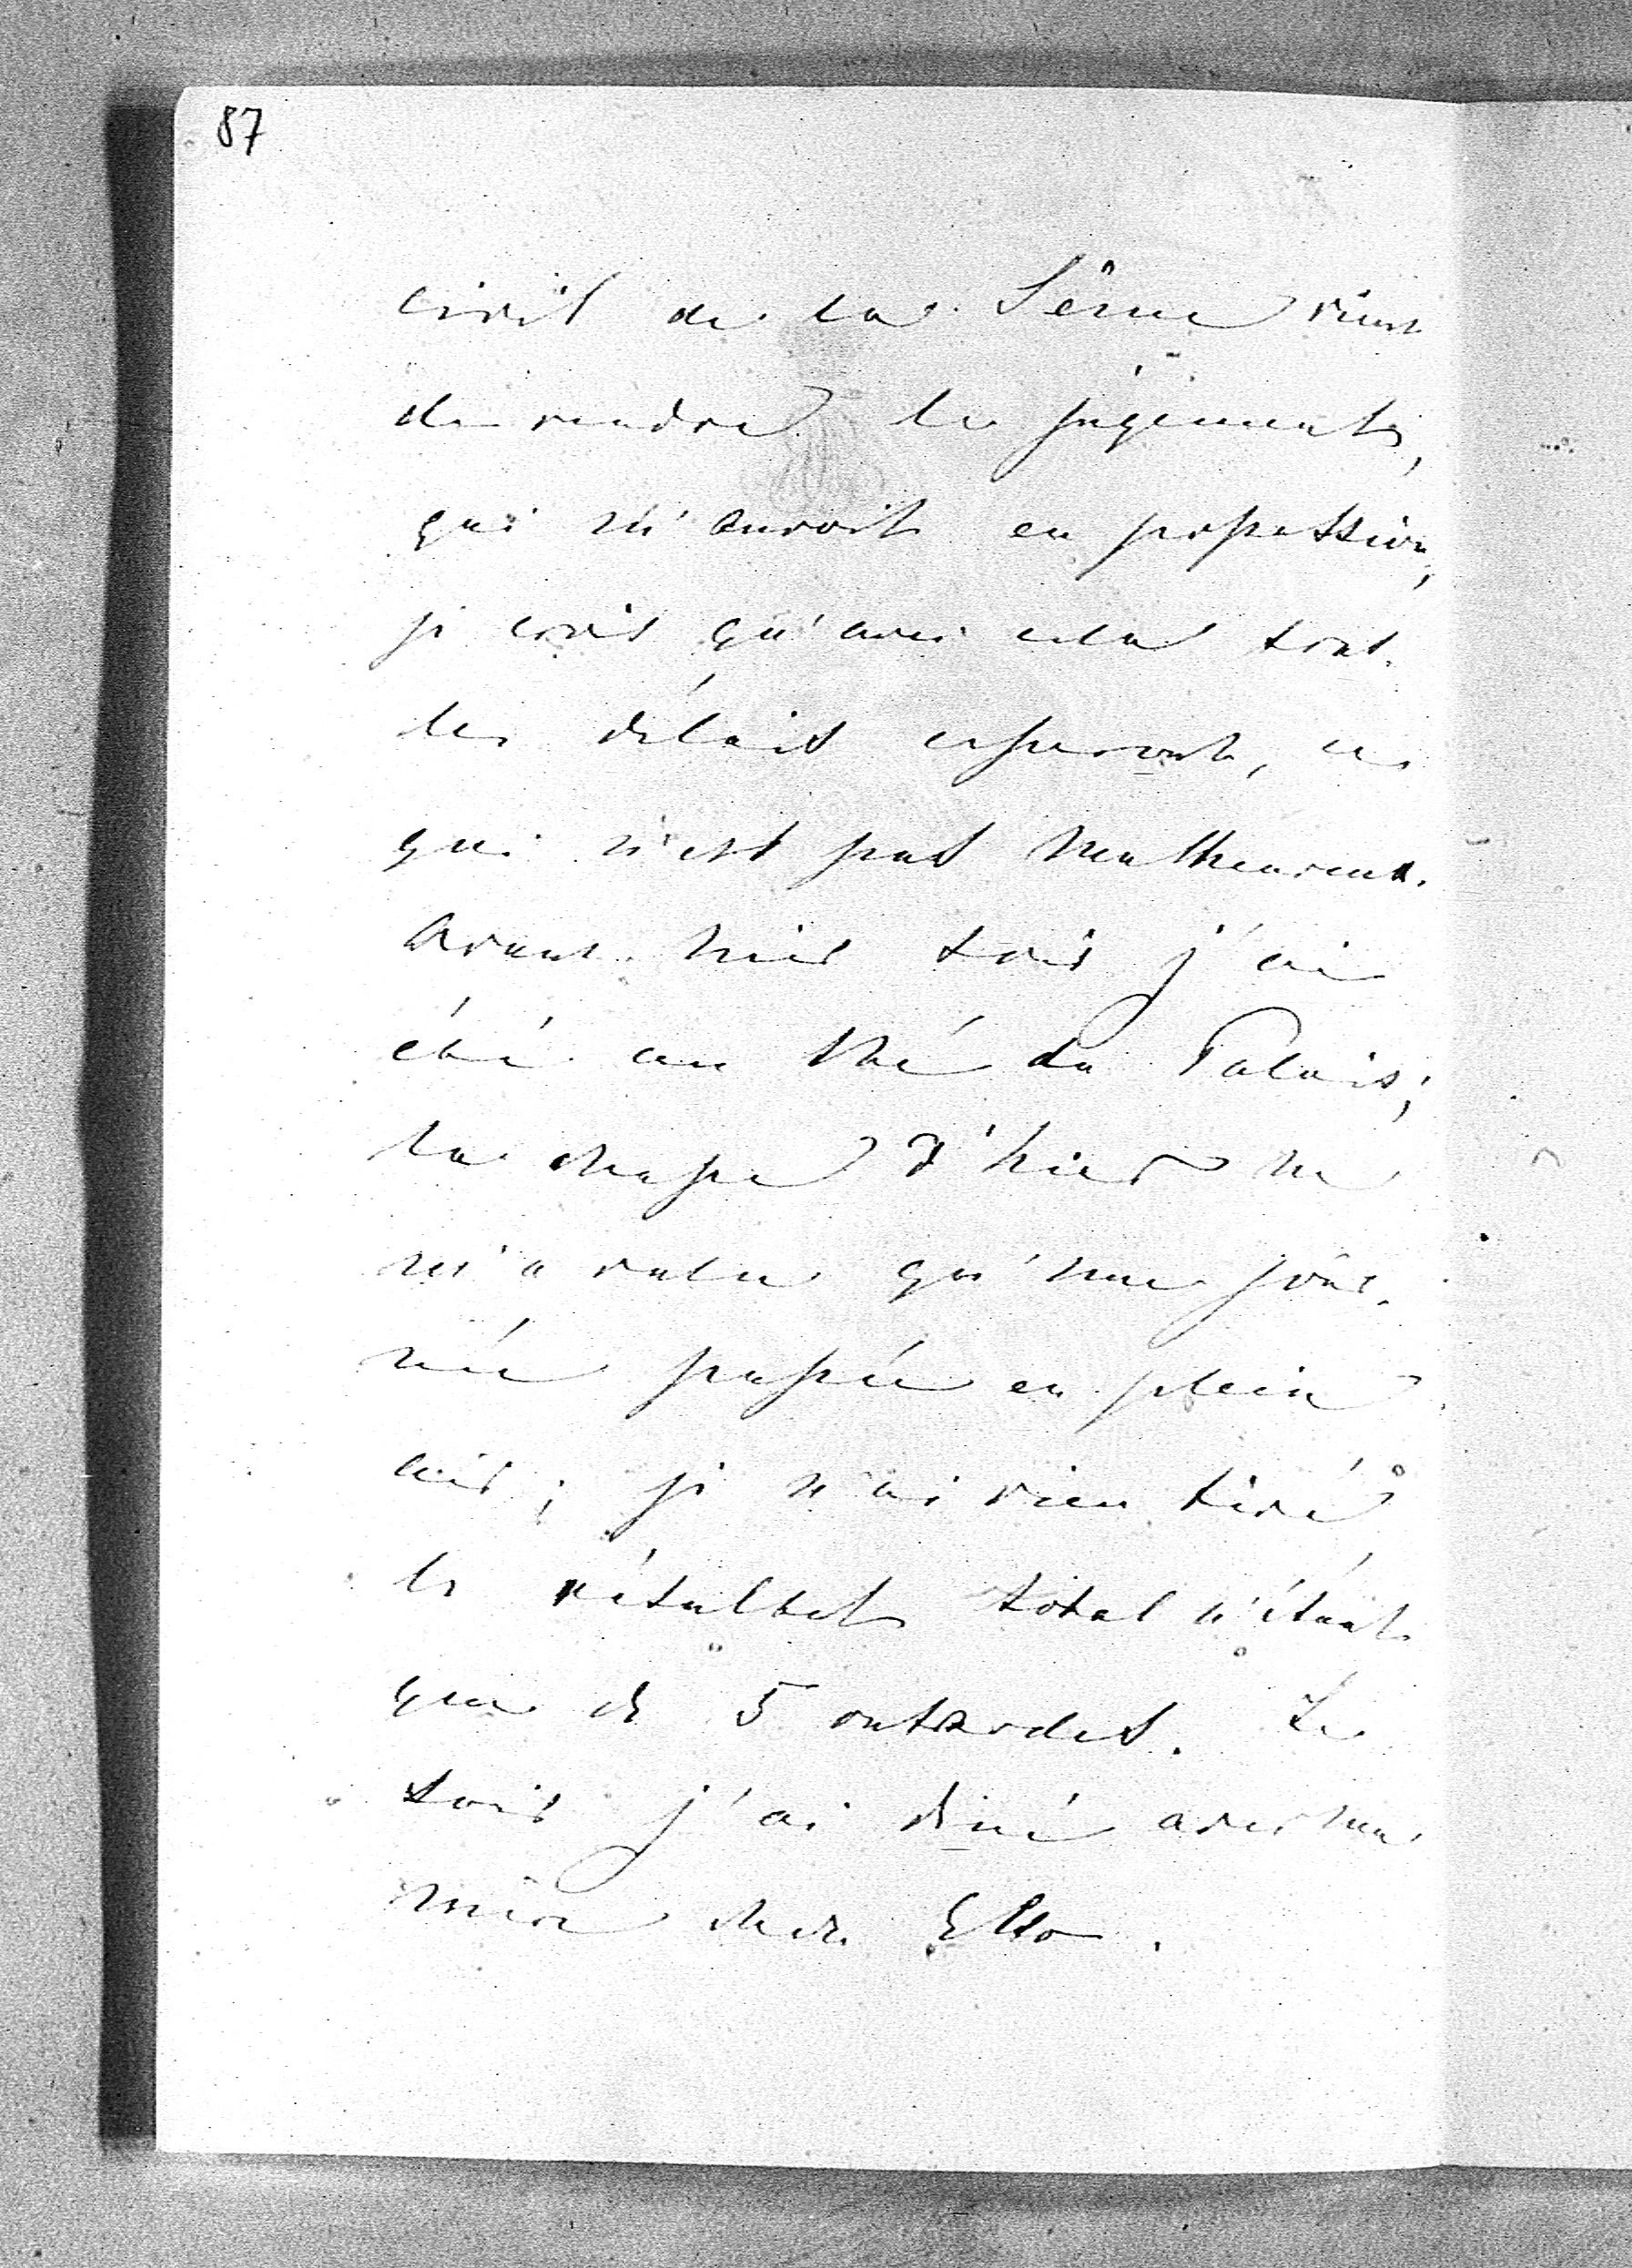 87
civil de la Seine vient
de rendre le jugement,
qui m'envoit en possession,
je crois qu'avec cela tous
les délais cesseront, ce
qui n'est pas malheureux.
Avant hier soir j'ai
été au thé du Palais;
la chasse d'hier ne
m'a valu qu'une jour-
née passée en plein
air; je n'ai rien tiré
le résultat total n'étant
que de 5 outardes. Le
soir j'ai diné avec ma
mère chez Ello.